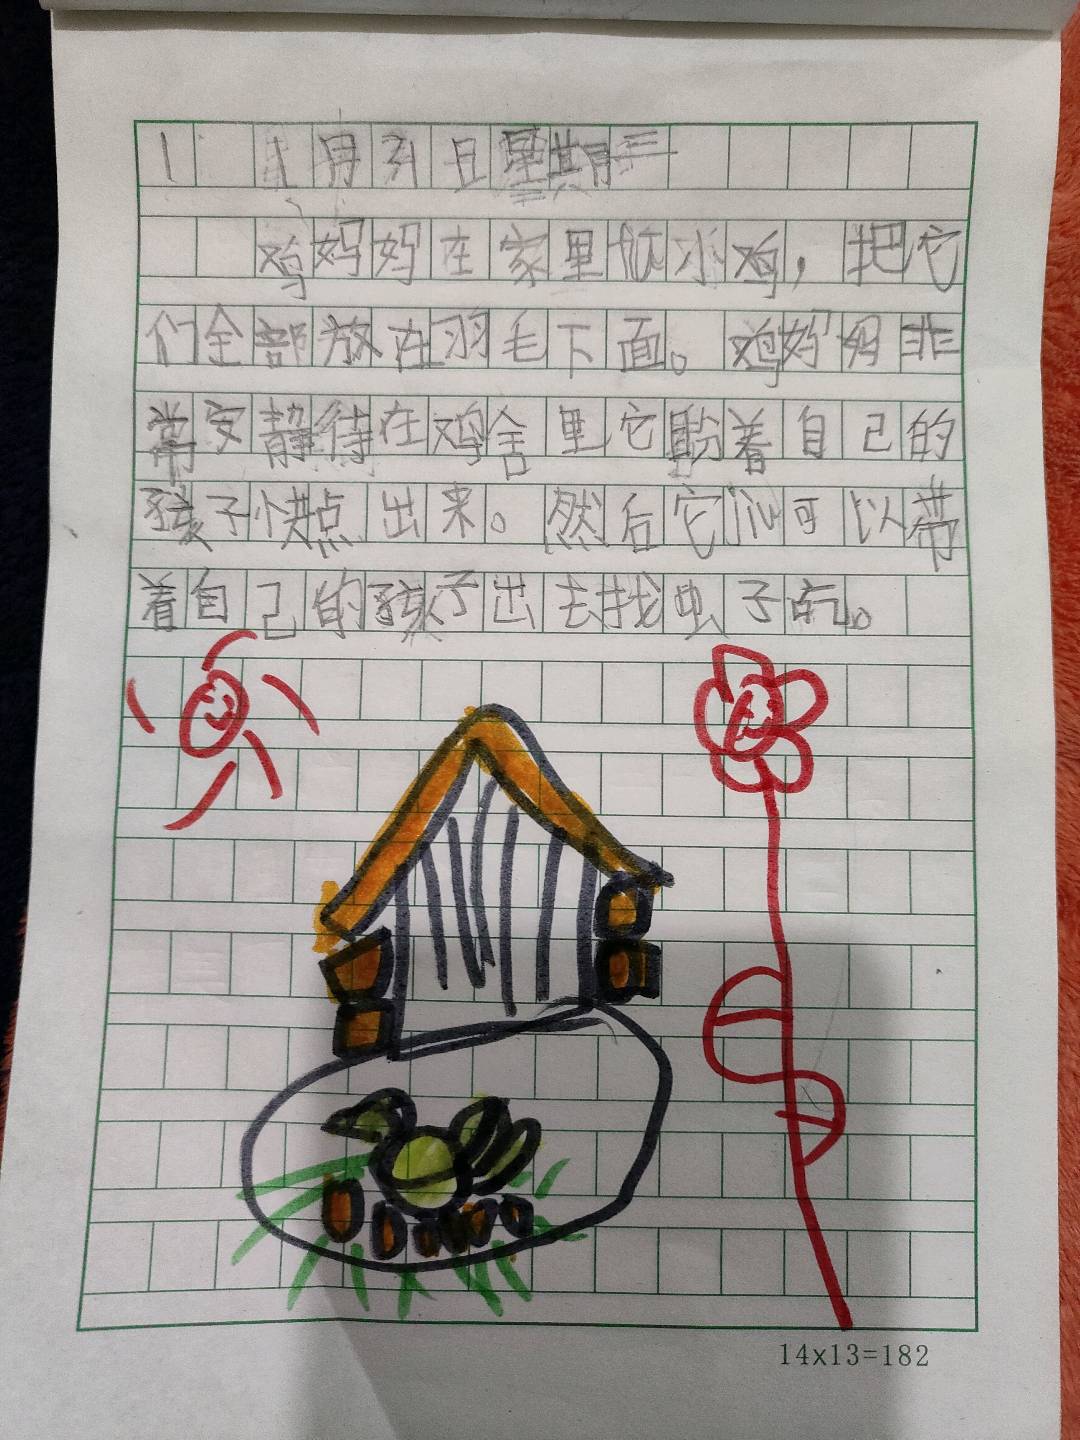 1 1月31日星期三
鸡妈妈在家里孵小鸡，把它
们全部放在羽毛下面。鸡妈妈非
常安静待在鸡舍里它盼着自己的
孩子快点出来。然后它们可以带
着自己的孩子出去找虫子吃。
14x13=182